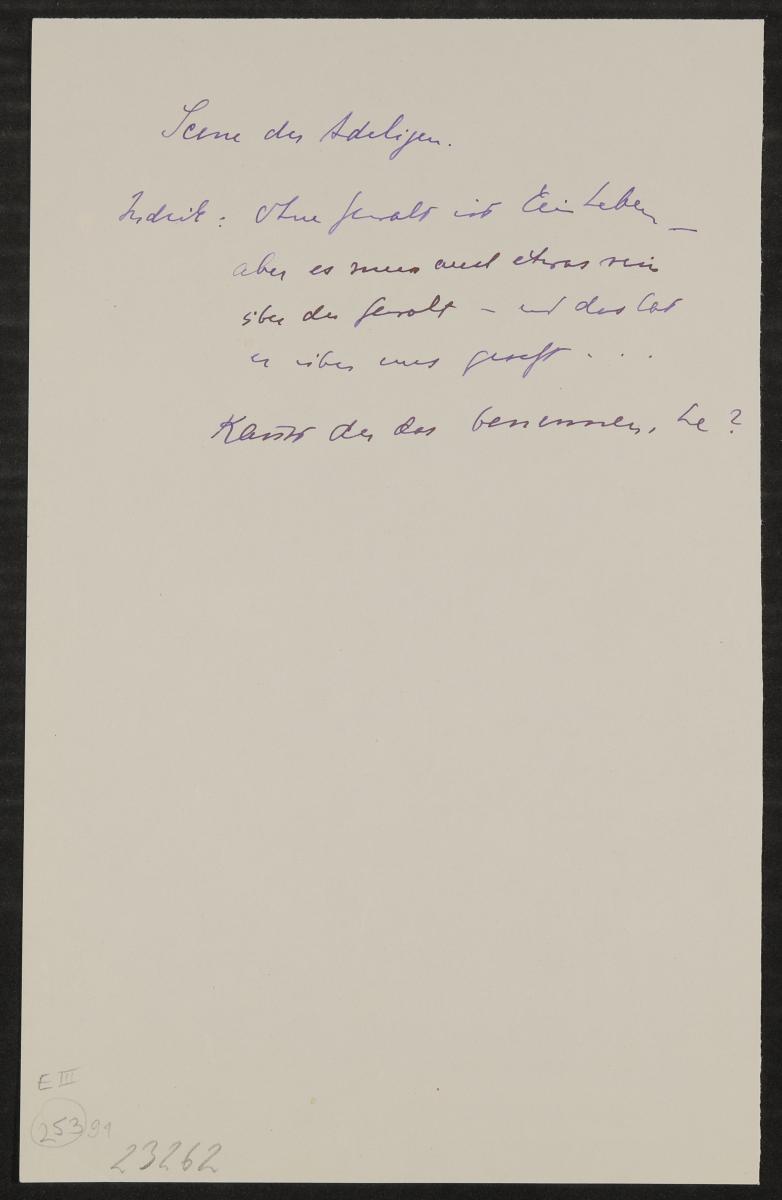 Scene der Adeligen.
Indrik: Ohne Gewalt ist kein Leben –
aber es muss auch etwas sein
über der Gewalt – und das hat
er über uns gesetzt . . .
Kannst du das benennen, he?
E III
253 91
23262